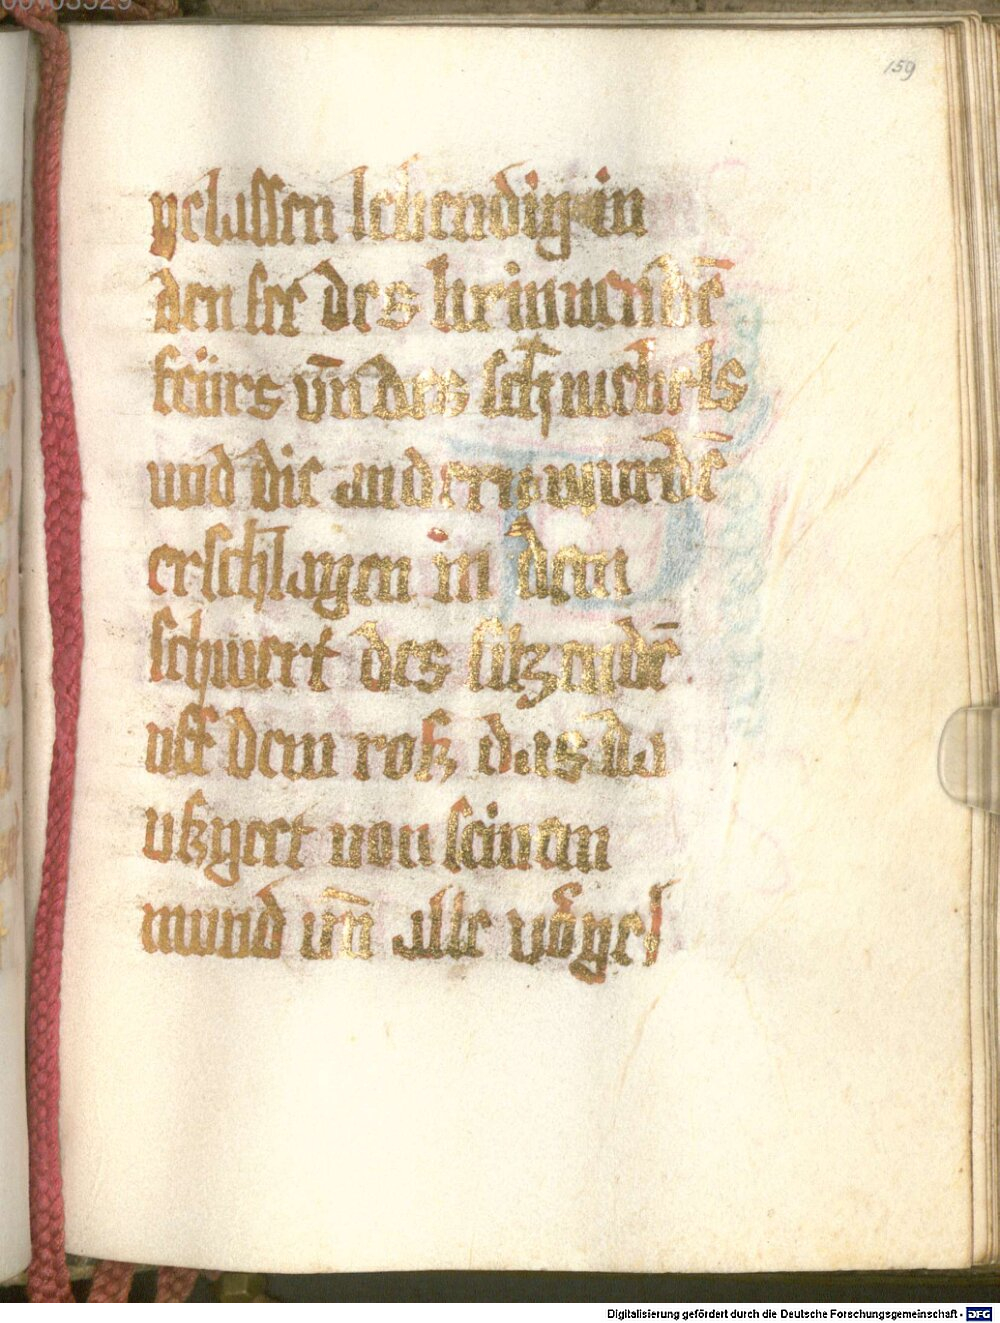 159
gelassen lebendig in
den see des brinnendē
feürs vn̄ des schwebels
und die anderen wurdē
erschlagen in dem
schwert des sitzendē
uff dem roß das da
ußgert von seinem
mund vn̄ alle vögel
Digitalisierung gefördert durch die Deutsche Forschungsgemeinschaft - DFG